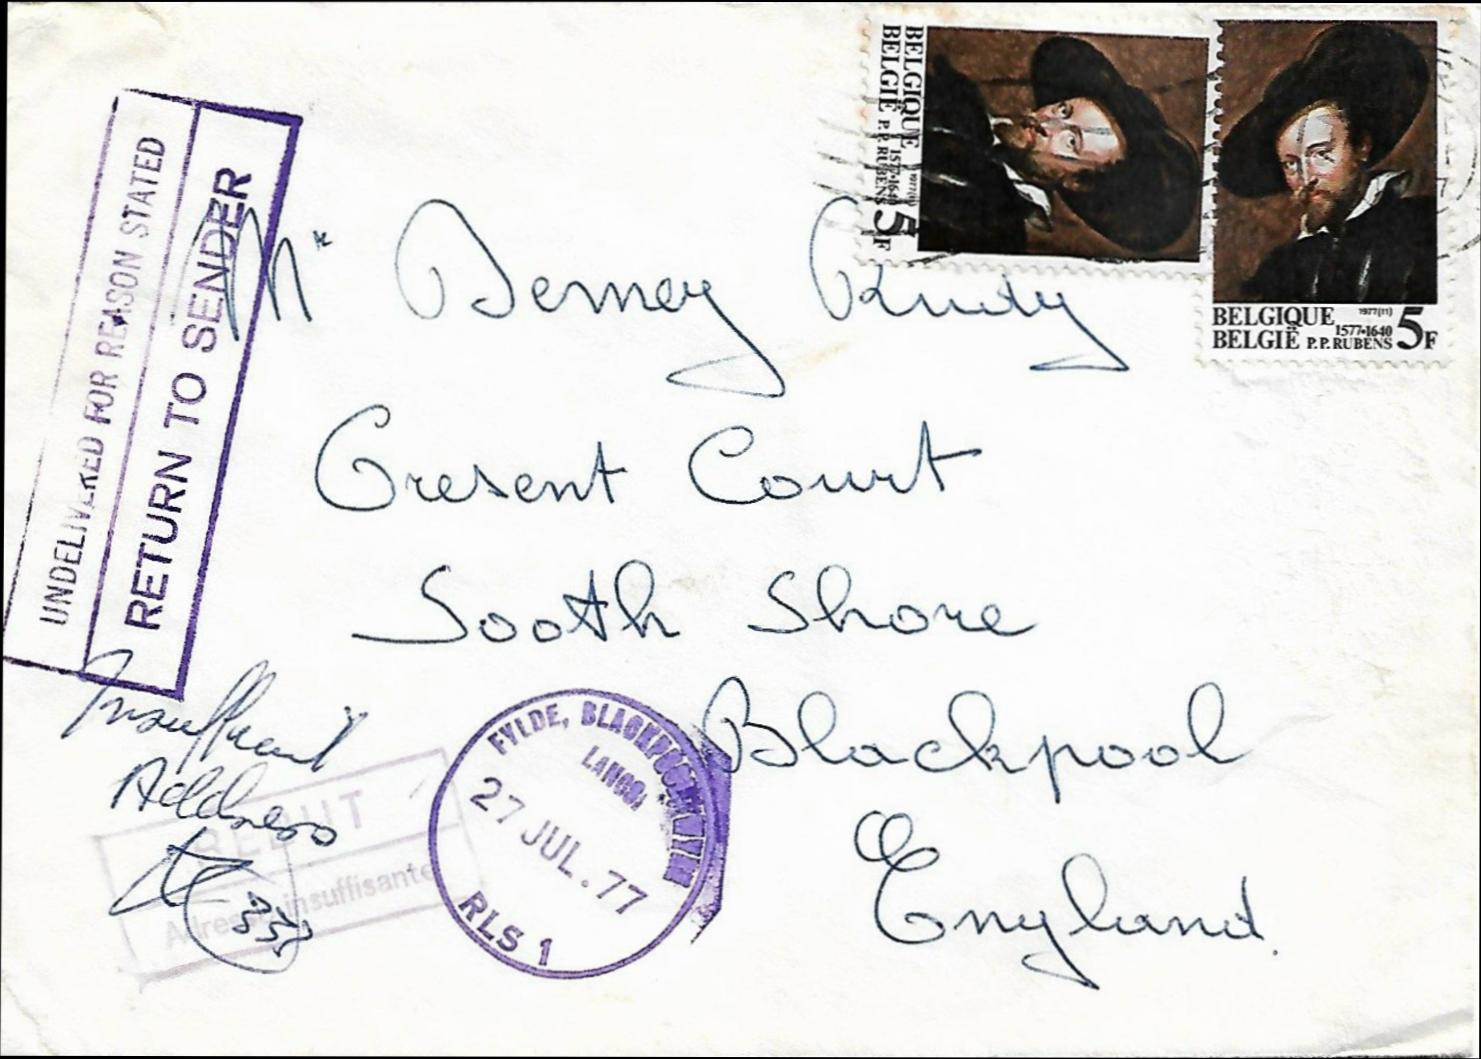 BELGIQUE
BELGIË P.P. RUBENS
1577-1640
1977(11)
5F
BELGIQUE 1977(11)
BELGIË P.P. RUBENS 1577-1640 5F
UNDELIVERED FOR REASON STATED
RETURN TO SENDER
Mr Demey Rudy
Cresent Court
Sooth Shore
Blackpool
England.
Insufficient
Address
REBUT
Adresse insuffisante
FYLDE, BLACKPOOL
LANCS
27 JUL. 77
RLS 1